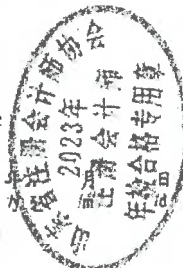 山东省注册会计师协会
2023年
注册会计师
年检合格专用章